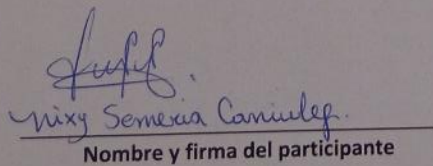 Nixy Semeria Caniulef.
Nombre y firma del participante